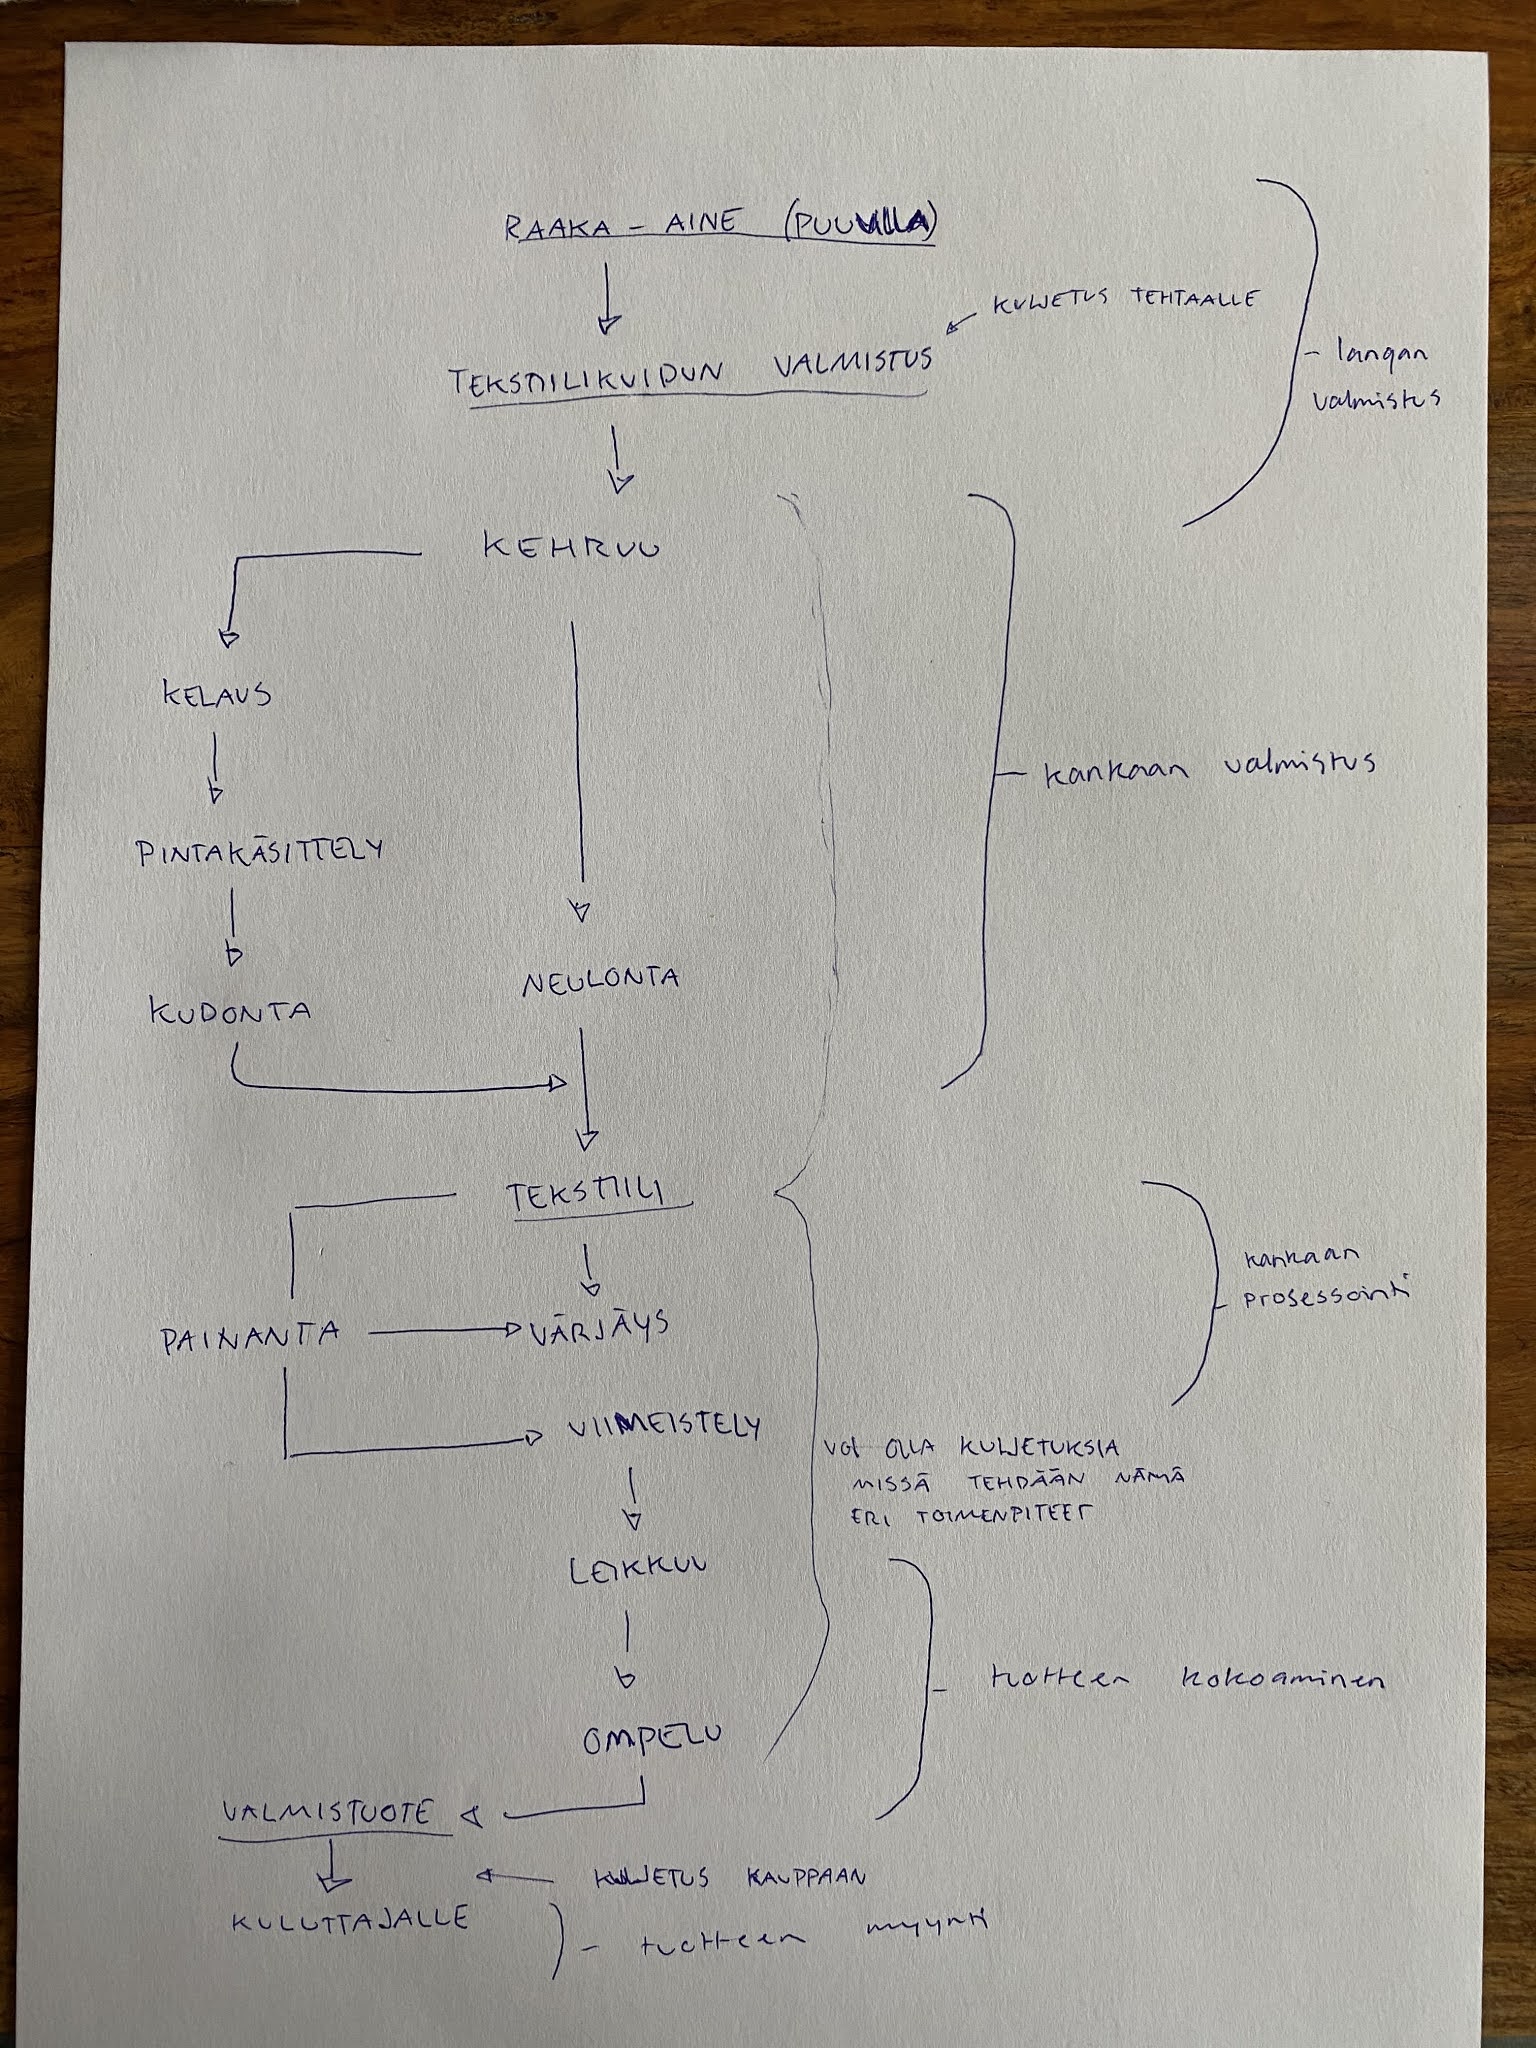 RAAKA - AINE (PUUVILLA)
KULJETUS TEHTAALLE
TEKSTIILIKUIDUN VALMISTUS
- langan
valmistus
KEHRUU
KELAUS
- kankaan valmistus
PINTAKÄSITTELY
NEULONTA
KUDONTA
TEKSTIILI
kankaan
- prosessointi
PAINANTA
VÄRJÄYS
VIIMEISTELY
VOI OLLA KULJETUKSIA
MISSÄ TEHDÄÄN NÄMÄ
ERI TOIMENPITEET
LEIKKUU
- tuotteen kokoaminen
OMPELU
VALMISTUOTE
KULJETUS KAUPPAAN
KULUTTAJALLE
- tuotteen myynti